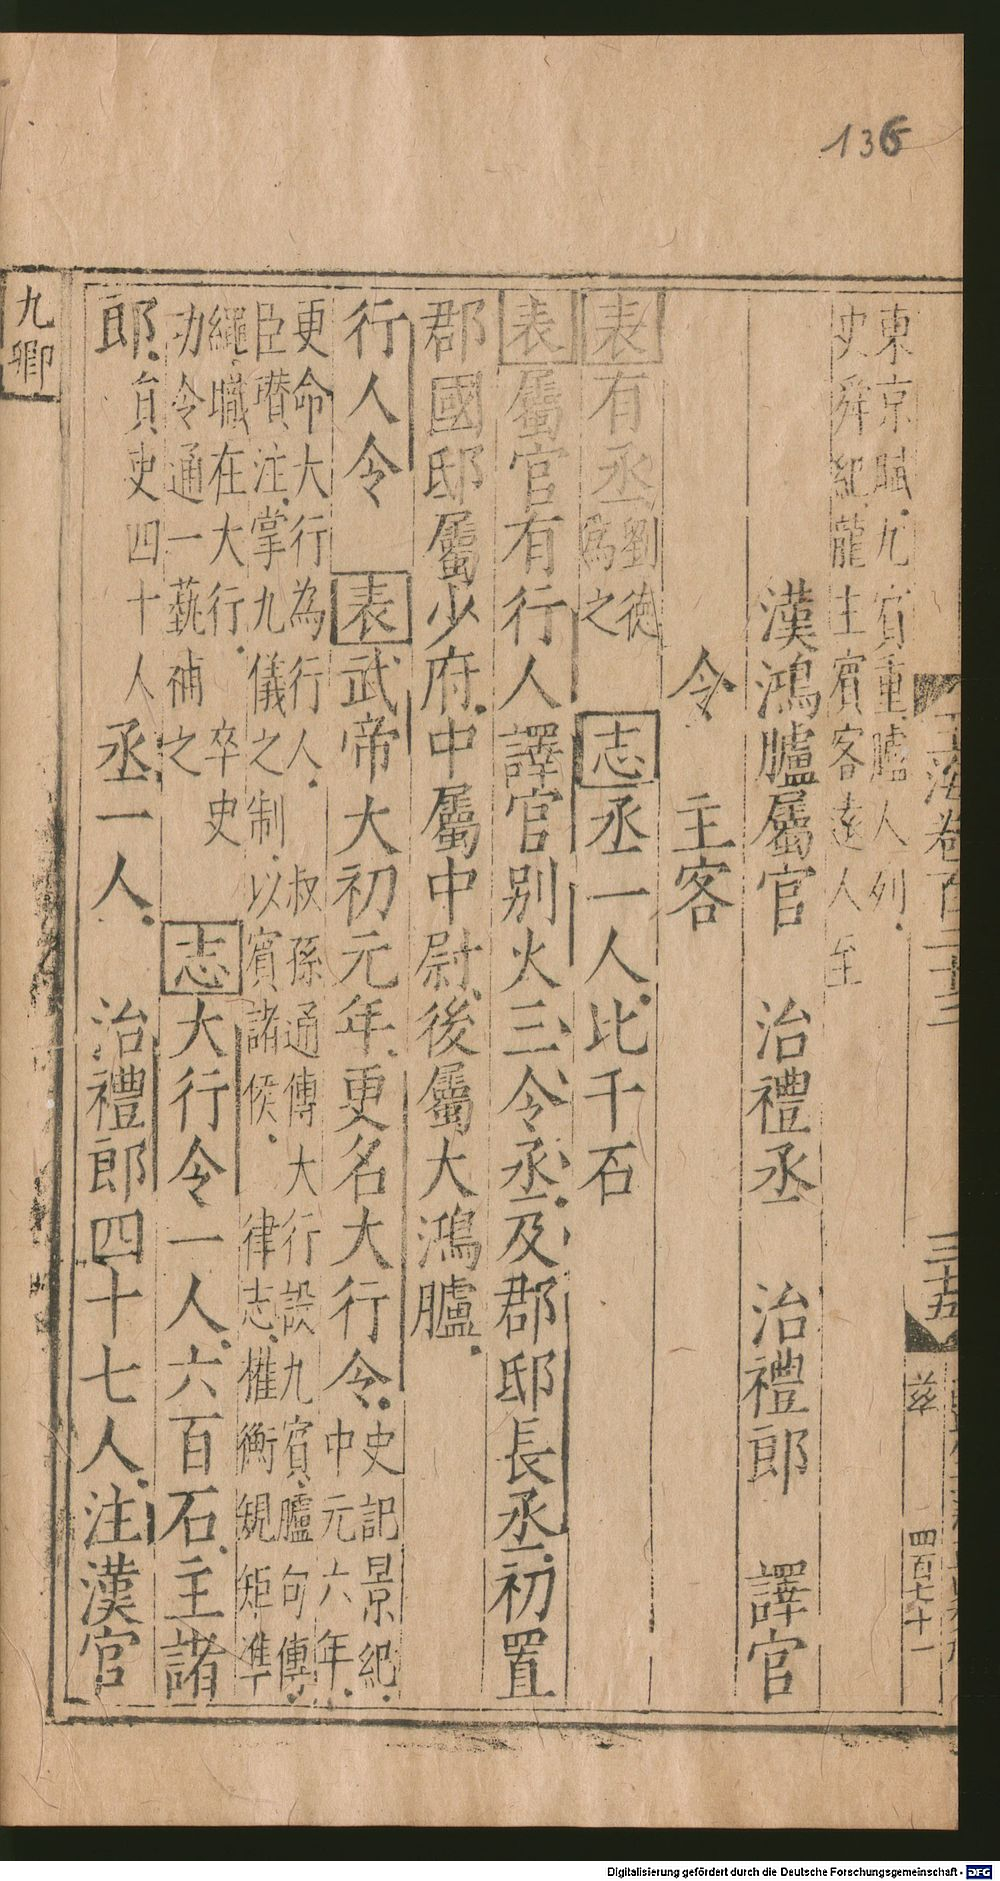 136
東京賦九賓重臚人列
史舜紀龍主賓客遠人至
漢鴻臚屬官 治禮丞 治禮郎 譯官
令 主客
表有丞劉徳為之 志丞一人比千石
表屬官有行人譯官别火三令丞及郡邸長丞初置
郡國邸屬少府中屬中尉後屬大鴻臚
行人令 表武帝大初元年更名大行令史記景紀中元六年
更命大行為行人 叔孫通傳大行設九賓臚句傳
臣瓚注掌九儀之制以賓諸侯 律志權衡規矩準
繩職在大行 卒史
功令通一藝補之
志大行令一人六百石主諸
郎員吏四十人 丞一人 治禮郎四十七人注漢官
九卿
三十五
四百七十一
Digitalisierung gefördert durch die Deutsche Forschungsgemeinschaft - DFG